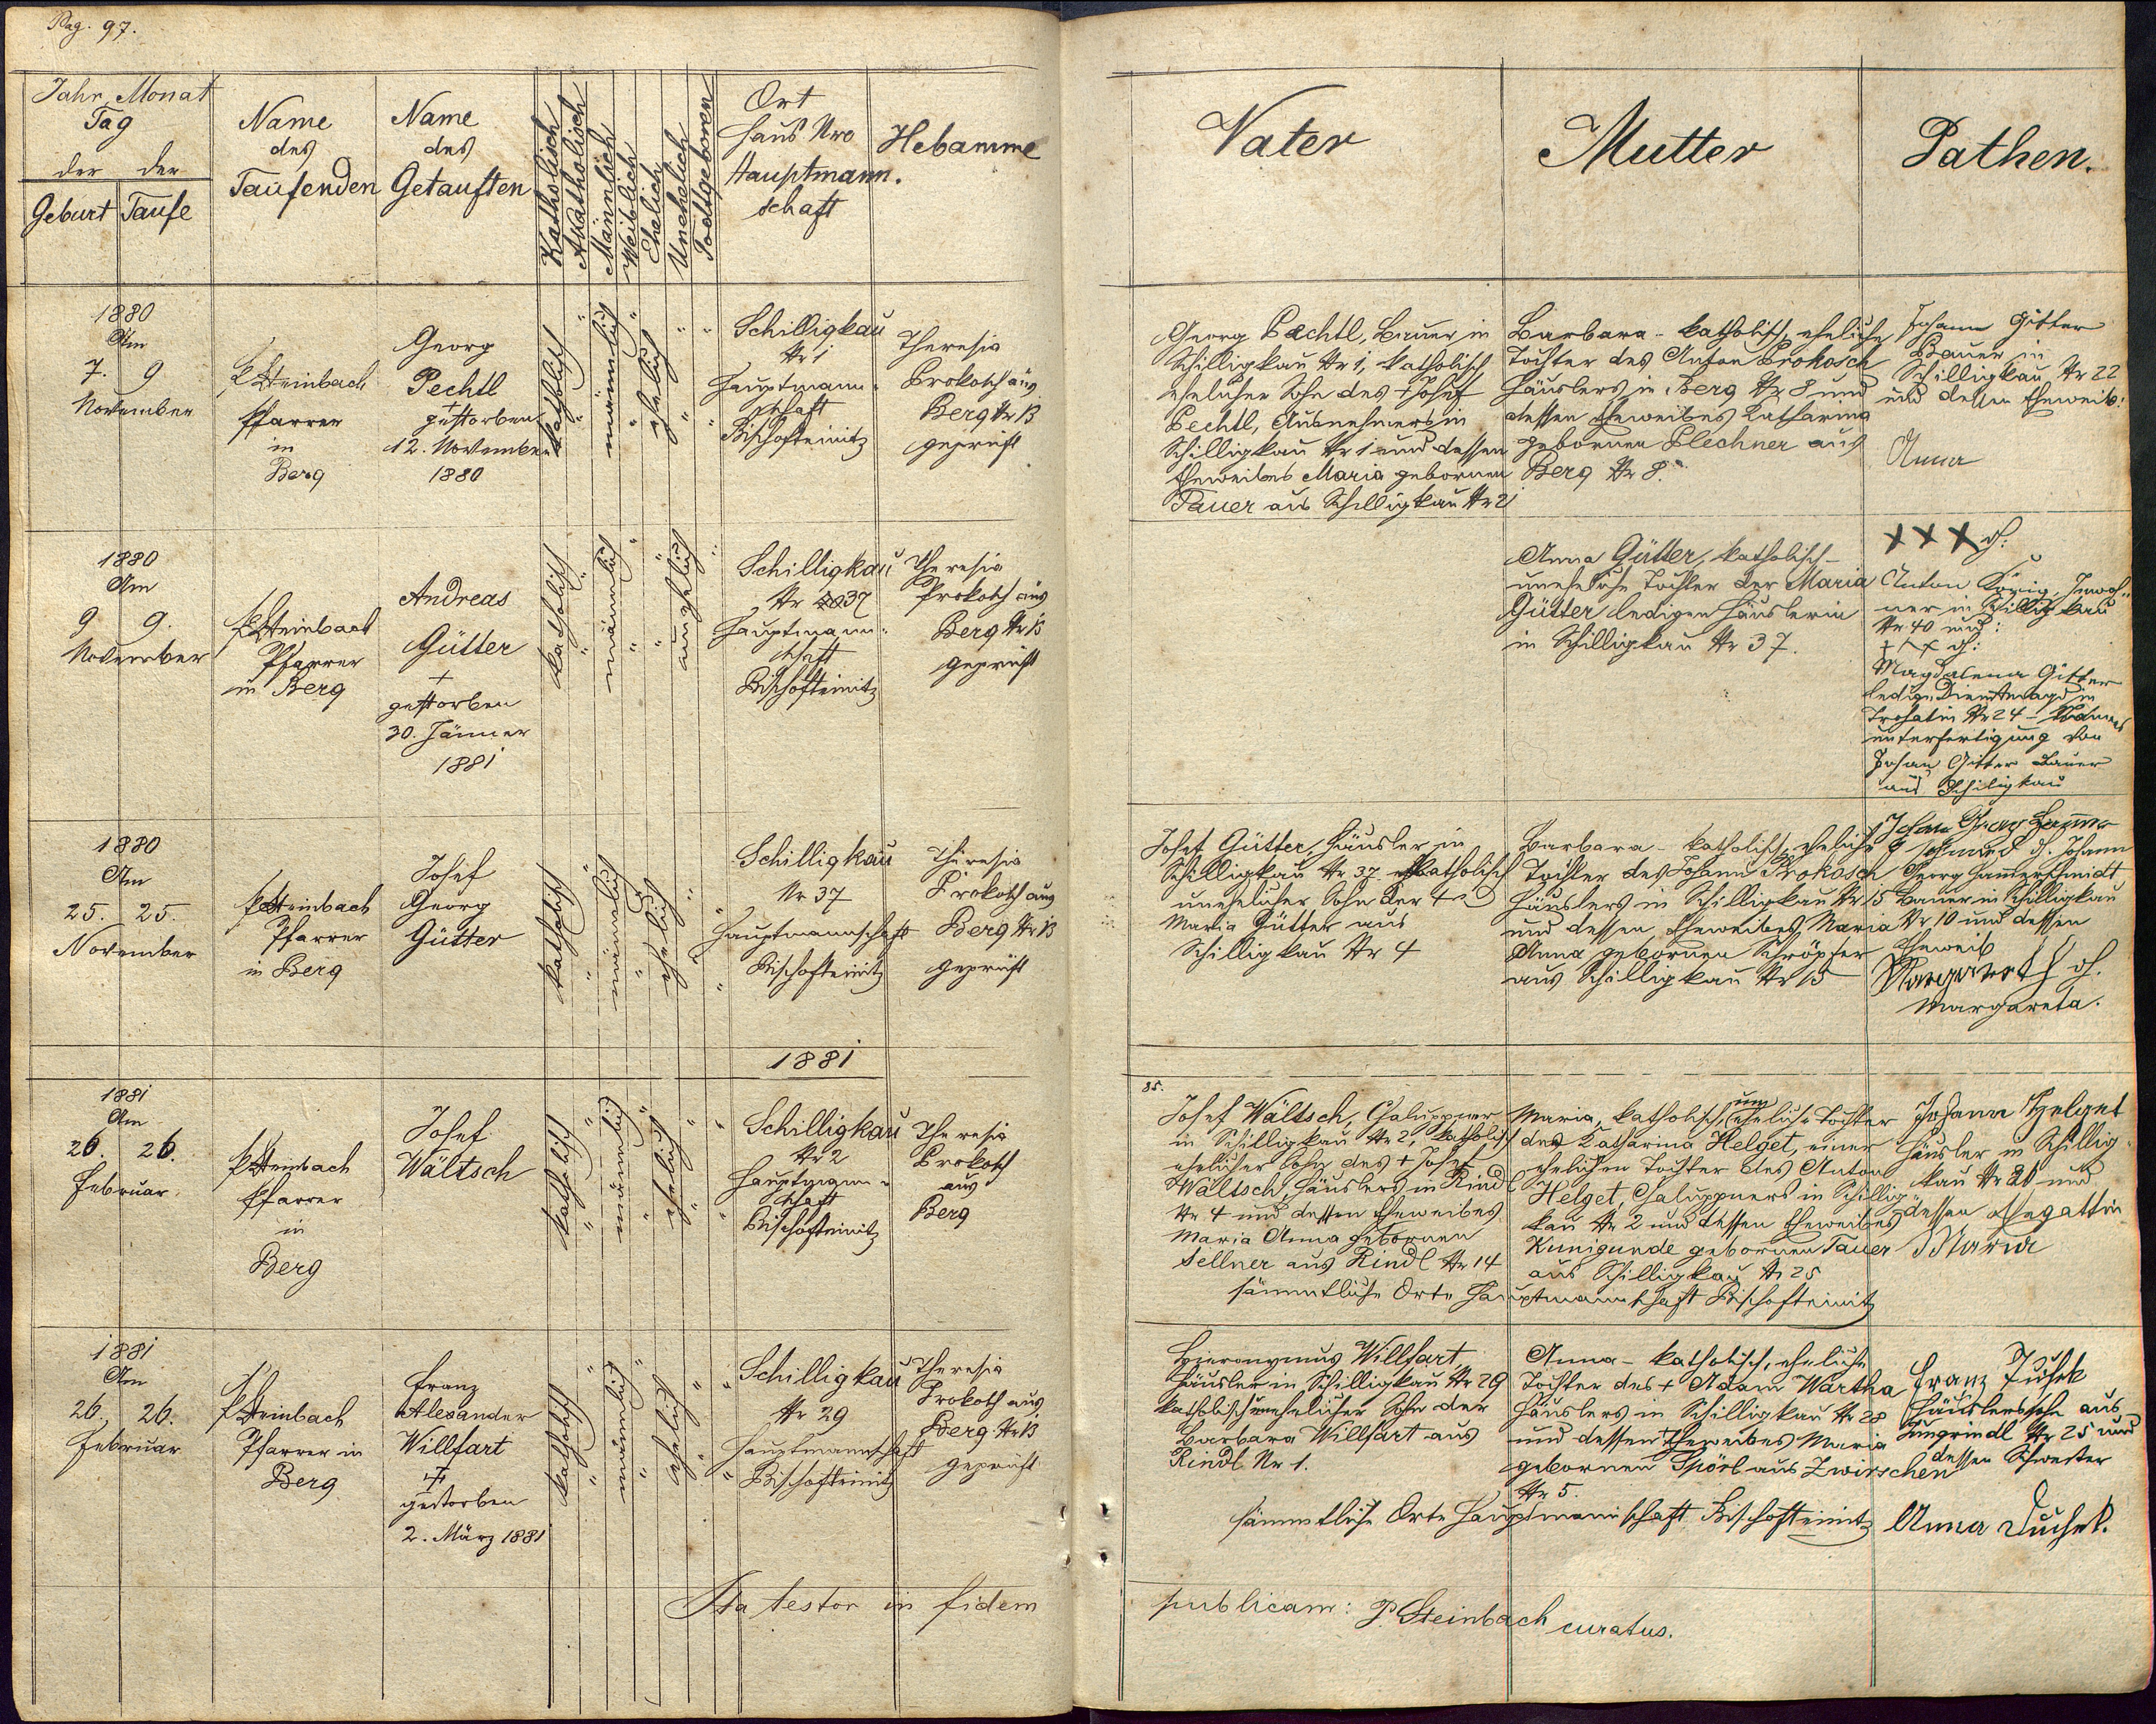 Pag. 97.
Jahr, Monat
Tag
der der
Geburt Taufe
Name
des
Taufenden
Name
des
Getauften
Katholisch
Akatholisch
Männlich
Weiblich
Ehelich
Unehelich
Todtgeboren
Ort
Haus Nro
Hauptmann.
schaft
Hebamme
Vater
Mutter
Pathen.
1880
Am
7. 9
November
P Steinbach
Pfarrer
in
Berg
Georg
Pechtl
+
gestorben
12. November
1880
katholisch
männlich
ehelich
Schilligkau
Nr 1
Hauptmann-
schaft
Bischofteinitz
Theresia
Prokosch aus
Berg Nr 13
geprüft
Georg Pechtl, Bauer in
Schilligkau Nr 1, katholisch
ehelicher Sohn des + Josef
Pechtl, Ausnehmers in
Schilligkau Nr 1 und dessen
Eheweibes Maria gebornen
Tauer aus Schilligkau Nr 21
Barbara - katholisch, eheliche
Tochter des Anton Prokosch
Häuslers in Berg Nr 8 und
dessen Eheweibes Katharina
gebornen Plechner aus
Berg Nr 8.
Johann Gitter
Bauer in
Schilligkau Nr 22
und dessen Eheweib:
Anna
1880
Am
9 9.
November
P Steinbach
Pfarrer
in Berg
Andreas
Gütter
+
gestorben
30. Jänner
1881
katholisch
männlich
unehelich
Schilligkau
Nr 37
Hauptmann-
schaft
Bischofteinitz
Theresia
Prokosch aus
Berg Nr 13
geprüft
Anna Gütter, katholisch -
uneheliche Tochter der Maria
Gütter ledigen Häuslerin
in Schilligkau Nr 37.
XXX d:
Anton König, Inwoh-
ner in Schilligkau
Nr 40 und:
XXX d:
Magdalena Gitter
ledige Dienstmagd in
Trohatin Nr 24 - Namens
unterfertigung von
Johan Gitter Bauer
aus Schiligkau
1880
Am
25. 25.
November
P Steinbach
Pfarrer
in Berg
Josef
Georg
Gütter
katholisch
männlich
ehelich
Schilligkau
Nr 37
Hauptmannschaft
Bischofteinitz
Theresia
Prokosch aus
Berg Nr 13
geprüft
Josef Gütter, Häusler in
Schilligkau Nr 37 katholisch
unehelicher Sohn der +
Maria Gütter aus
Schilligkau Nr 4
Barbara - katholisch, eheliche
Tochter des Johann Prokosch
Häuslers in Schilligkau Nr 15
und dessen Eheweibes Maria
Anna gebornen Schröpfer
aus Schilligkau Nr 15
Johan Georg
d. Johann
Georg Hamerschmidt
Bauer in Schilligkau
Nr 10 und dessen
Eheweib
d.
Margareta.
1881
1881
Am
26. 26.
Februar
P Steinbach
Pfarrer
in
Berg
Josef
Wältsch
katholisch
männlich
ehelich
Schilligkau
Nr 2
Hauptmann-
schaft
Bischofteinitz
Theresia
Prokosch
aus
Berg
85.
Josef Wältsch, Chaluppner
in Schilligkau Nr 2, katholisch
ehelicher Sohn des + Josef
Wältsch, Häuslers in Rindl
Nr 4 und dessen Eheweibes
Maria Anna gebornen
Sellner aus Rindl Nr 14
Maria, katholisch, uneheliche Tochter
der Katharina Helget, einer
ehelichen Tochter des Anton
Helget, Chaluppners in Schillig-
kau Nr 2 und dessen Eheweibes
Kunigunde gebornen Tauer
aus Schilligkau Nr 25
sämmtliche Orte Hauptmannschaft Bischofteinitz
Johann Helget
Häusler in Schillig-
kau Nr 21 und
dessen Ehegattin
Maria
1881
Am
26. 26.
Februar
P Steinbach
Pfarrer in
Berg
Franz
Alexander
Willfart
+
gestorben
2. März 1881
katholisch
männlich
ehelich
Schilligkau
Nr 29
Hauptmannschaft
Bischofteinitz
Theresia
Prokosch aus
Berg Nr 13
geprüft
Hieronymus Willfart,
Häusler in Schilligkau Nr 29
katholisch unehelicher Sohn der
Barbara Willfart aus
Rindl Nr 1.
Anna - katholisch, eheliche
Tochter des + Adam Wartha
Häuslers in Schilligkau Nr 28
und dessen Eheweibes Maria
gebornen Spörl aus Zwirschen
Nr 5.
sämmtliche Orte Hauptmannschaft Bischofteinitz
Franz Duschek
Häuslerssohn aus
Nr 25 und
dessen Schwester
Anna Duschek.
Ita testor in fidem
publicam: P. Steinbach curatus.